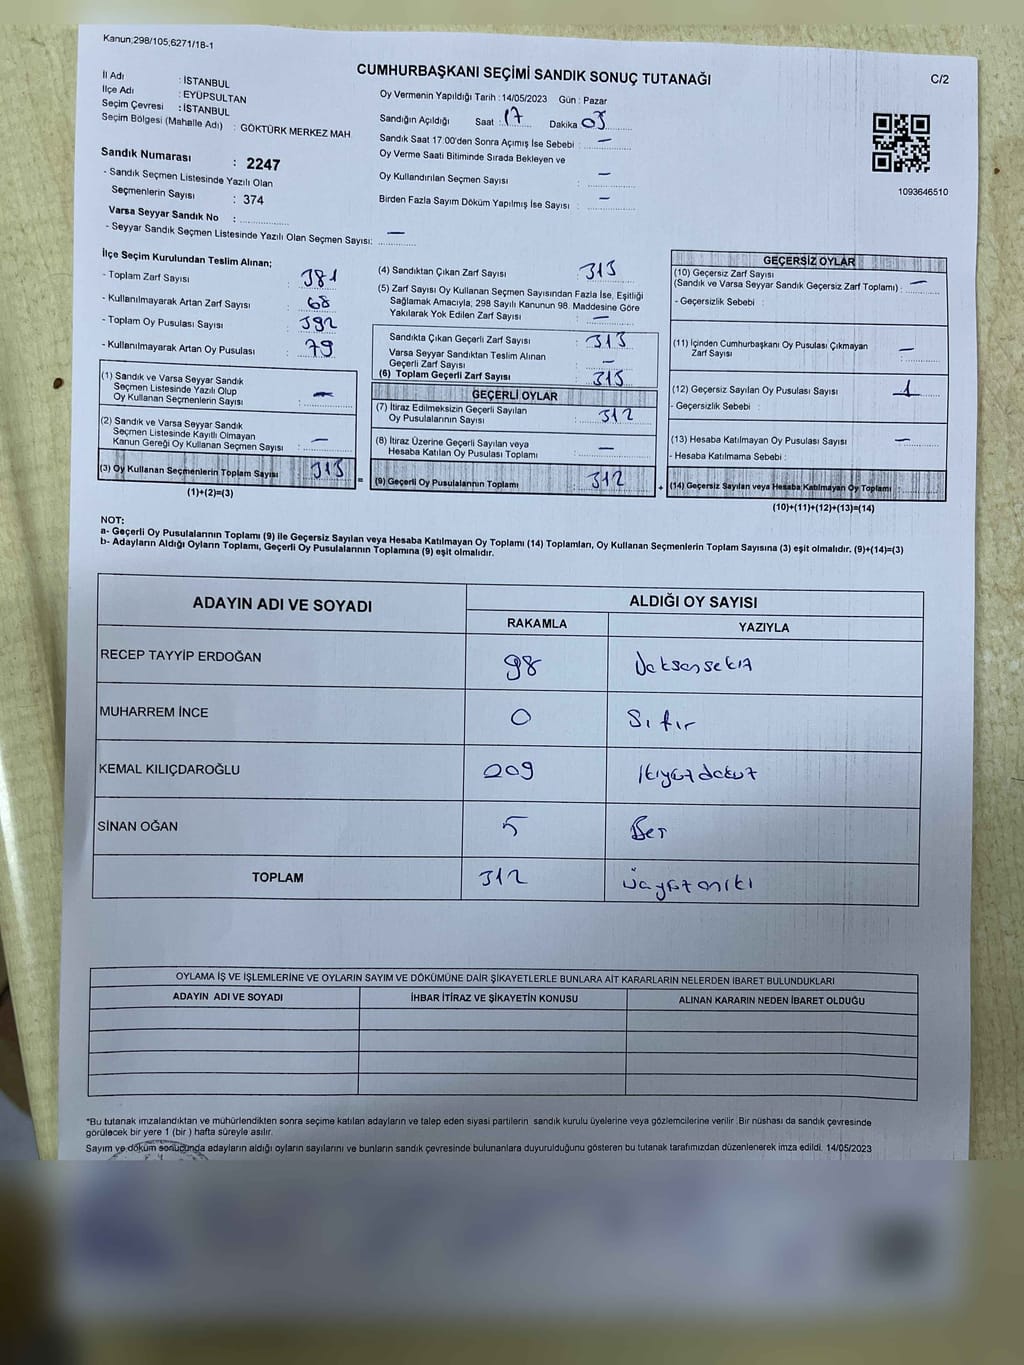 Kanun;298/105;6271/18-1
CUMHURBAŞKANI SEÇİMİ SANDIK SONUÇ TUTANAĞI
C/2
İl Adı : İSTANBUL
İlçe Adı : EYÜPSULTAN
Seçim Çevresi : İSTANBUL
Seçim Bölgesi (Mahalle Adı) : GÖKTÜRK MERKEZ MAH.
Sandık Numarası : 2247
- Sandık Seçmen Listesinde Yazılı Olan
Seçmenlerin Sayısı : 374
Varsa Seyyar Sandık No :
- Seyyar Sandık Seçmen Listesinde Yazılı Olan Seçmen Sayısı: —
Oy Vermenin Yapıldığı Tarih : 14/05/2023 Gün : Pazar
Sandığın Açıldığı Saat : 17 Dakika 05
Sandık Saat 17:00'den Sonra Açımış İse Sebebi : —
Oy Verme Saati Bitiminde Sırada Bekleyen ve
Oy Kullandırılan Seçmen Sayısı : —
Birden Fazla Sayım Döküm Yapılmış İse Sayısı : —
1093646510
İlçe Seçim Kurulundan Teslim Alınan;
- Toplam Zarf Sayısı : 381
- Kullanılmayarak Artan Zarf Sayısı : 68
- Toplam Oy Pusulası Sayısı : 392
- Kullanılmayarak Artan Oy Pusulası : 79
(1) Sandık ve Varsa Seyyar Sandık
Seçmen Listesinde Yazılı Olup
Oy Kullanan Seçmenlerin Sayısı : —
(2) Sandık ve Varsa Seyyar Sandık
Seçmen Listesinde Kayıtlı Olmayan
Kanun Gereği Oy Kullanan Seçmen Sayısı : —
(3) Oy Kullanan Seçmenlerin Toplam Sayısı : 313
(1)+(2)=(3)
=
(4) Sandıktan Çıkan Zarf Sayısı : 313
(5) Zarf Sayısı Oy Kullanan Seçmen Sayısından Fazla İse, Eşitliği
Sağlamak Amacıyla; 298 Sayılı Kanunun 98. Maddesine Göre
Yakılarak Yok Edilen Zarf Sayısı : —
Sandıkta Çıkan Geçerli Zarf Sayısı : 313
Varsa Seyyar Sandıktan Teslim Alınan
Geçerli Zarf Sayısı : —
(6) Toplam Geçerli Zarf Sayısı : 313
GEÇERLİ OYLAR
(7) İtiraz Edilmeksizin Geçerli Sayılan
Oy Pusulalarının Sayısı : 312
(8) İtiraz Üzerine Geçerli Sayılan veya
Hesaba Katılan Oy Pusulası Toplamı : —
(9) Geçerli Oy Pusulalarının Toplamı : 312
+
GEÇERSİZ OYLAR
(10) Geçersiz Zarf Sayısı
(Sandık ve Varsa Seyyar Sandık Geçersiz Zarf Toplamı) : —
- Geçersizlik Sebebi :
(11) İçinden Cumhurbaşkanı Oy Pusulası Çıkmayan
Zarf Sayısı : —
(12) Geçersiz Sayılan Oy Pusulası Sayısı : 1
- Geçersizlik Sebebi :
(13) Hesaba Katılmayan Oy Pusulası Sayısı : —
- Hesaba Katılmama Sebebi :
(14) Geçersiz Sayılan veya Hesaba Katılmayan Oy Toplamı :
(10)+(11)+(12)+(13)=(14)
NOT:
a- Geçerli Oy Pusulalarının Toplamı (9) ile Geçersiz Sayılan veya Hesaba Katılmayan Oy Toplamı (14) Toplamları, Oy Kullanan Seçmenlerin Toplam Sayısına (3) eşit olmalıdır. (9)+(14)=(3)
b- Adayların Aldığı Oyların Toplamı, Geçerli Oy Pusulalarının Toplamına (9) eşit olmalıdır.
ADAYIN ADI VE SOYADI ALDIĞI OY SAYISI
RAKAMLA YAZIYLA
RECEP TAYYİP ERDOĞAN 98
MUHARREM İNCE 0 Sıfır
KEMAL KILIÇDAROĞLU 209 ikiyüzdokuz
SİNAN OĞAN 5 Beş
TOPLAM 312 üçyüzoniki
OYLAMA İŞ VE İŞLEMLERİNE VE OYLARIN SAYIM VE DÖKÜMÜNE DAİR ŞİKAYETLERLE BUNLARA AİT KARARLARIN NELERDEN İBARET BULUNDUKLARI
ADAYIN ADI VE SOYADI İHBAR İTİRAZ VE ŞİKAYETİN KONUSU ALINAN KARARIN NEDEN İBARET OLDUĞU
*Bu tutanak imzalandıktan ve mühürlendikten sonra seçime katılan adayların ve talep eden siyasi partilerin sandık kurulu üyelerine veya gözlemcilerine verilir. Bir nüshası da sandık çevresinde
görülecek bir yere 1 (bir ) hafta süreyle asılır.
Sayım ve döküm sonucunda adayların aldığı oyların sayılarını ve bunların sandık çevresinde bulunanlara duyurulduğunu gösteren bu tutanak tarafımızdan düzenlenerek imza edildi. 14/05/2023